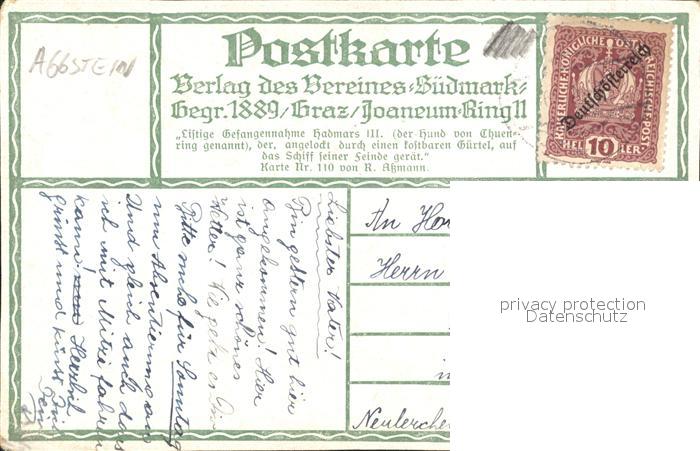 AGGSTEIN
Postkarte
Verlag des Vereines Südmark
Gegr. 1889/Graz/Joaneum-Ring 11
„Listige Gefangennahme Hadmars III. (der Hund von Chuen-
ring genannt), der, angelockt durch einen kostbaren Gürtel, auf
das Schiff seiner Feinde gerät.“
Karte Nr. 110 von R. Aßmann.
KAISERLICHE KÖNIGLICHE ÖSTERREICHISCHE POST
Deutschösterreich
10
HELLER
Liebster Vater!
Bin gestern gut hier
angekommen! Hier
ist ganz schönes
Wetter! Wie geht es Dir
Bitte suche für Sonntag
um
Und gleich auch dass
ich mit Mitzi fahren
kann! Herzlich
grüsst und küsst Dich
An
Herrn
privacy protection
Datenschutz
in